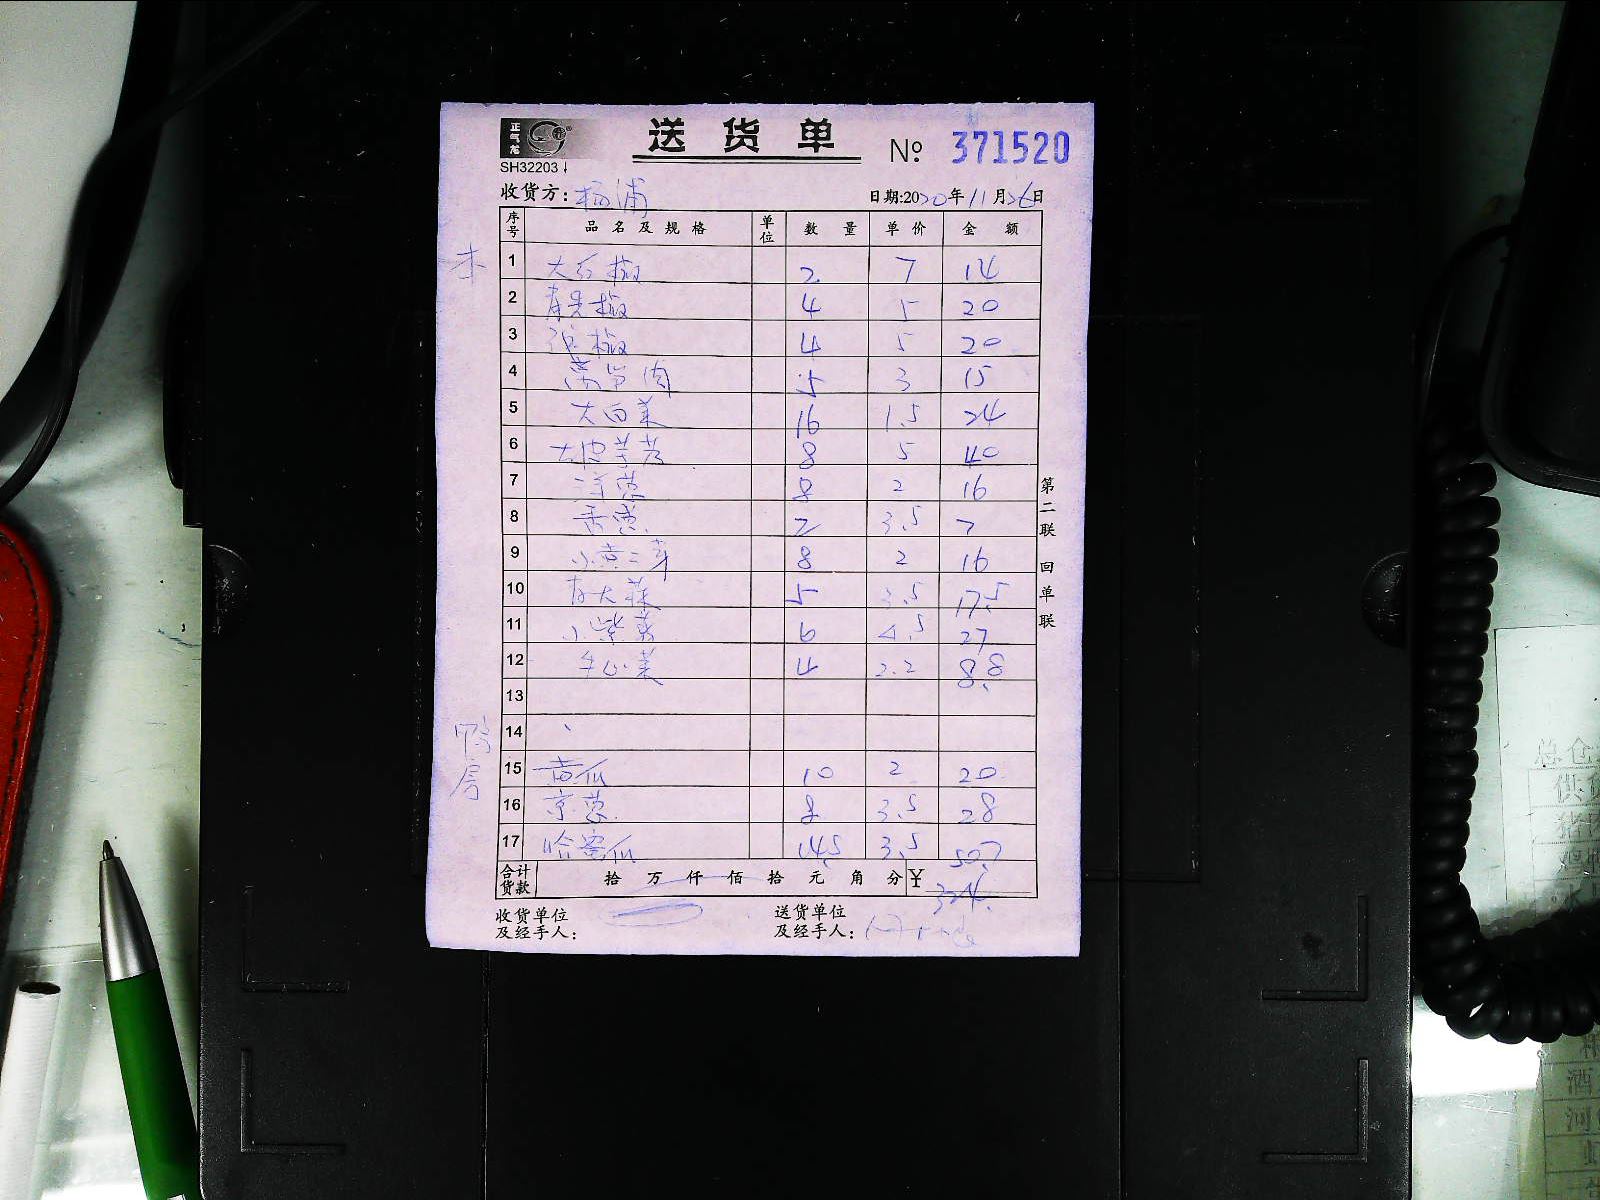 正气龙
送货单
№ 371520
SH32203
收货方: 杨浦 日期:2020年11月26日
序号 品名及规格 单位 数量 单价 金额
本
1 大红椒 2 7 14
2 青尖椒 4 5 20
3 椒 4 5 20
4 莴笋肉 5 3 15
5 大白菜 16 1.5 24
6 大洋芋 8 5 40
7 洋葱 8 2 16
8 香葱 2 3.5 7
9 小黄豆芽 8 2 16
10 青大蒜 5 3.5 17.5
11 小紫 6 4.5 27
12 牛心菜 4 2.2 8.8
13
14
鸭房
15 黄瓜 10 2 20
16 京葱 8 3.5 28
17 哈密瓜 14.5 3.5 50.7
合计货款 拾万仟佰拾元角分 ¥ 324.
收货单位及经手人:
送货单位及经手人:
第二联 回单联
总仓
供
酒